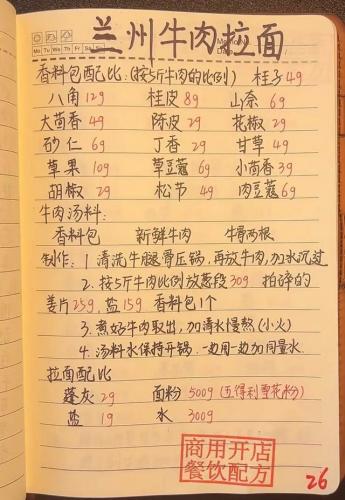 兰州牛肉拉面
Mo Tu We Th Fr Sa Su
香料包配比:(按5斤牛肉的比例) 桂子4g
八角12g 桂皮8g 山奈6g
大茴香4g 陈皮2g 花椒2g
砂仁6g 丁香2g 甘草4g
草果10g 草豆蔻6g 小茴香3g
胡椒2g 松节4g 肉豆蔻6g
牛肉汤料:
香料包 新鲜牛肉 牛骨两根
制作:1 清洗牛腿骨压锅,再放牛肉,加水沉过
2、按5斤牛肉比例放葱段30g 拍碎的
姜片25g、盐15g 香料包1个
3、煮好牛肉取出,加清水慢熬(小火)
4、汤料水保持开锅、一边用一边加同量水
拉面配比
蓬灰2g 面粉500g(五得利雪花粉)
盐1g 水300g
商用开店
餐饮配方
26